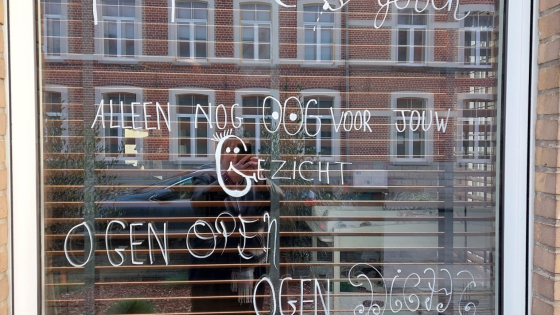 ALLEEN NOG OOG VOOR JOUW
GEZICHT
OGEN OPEN
OGEN